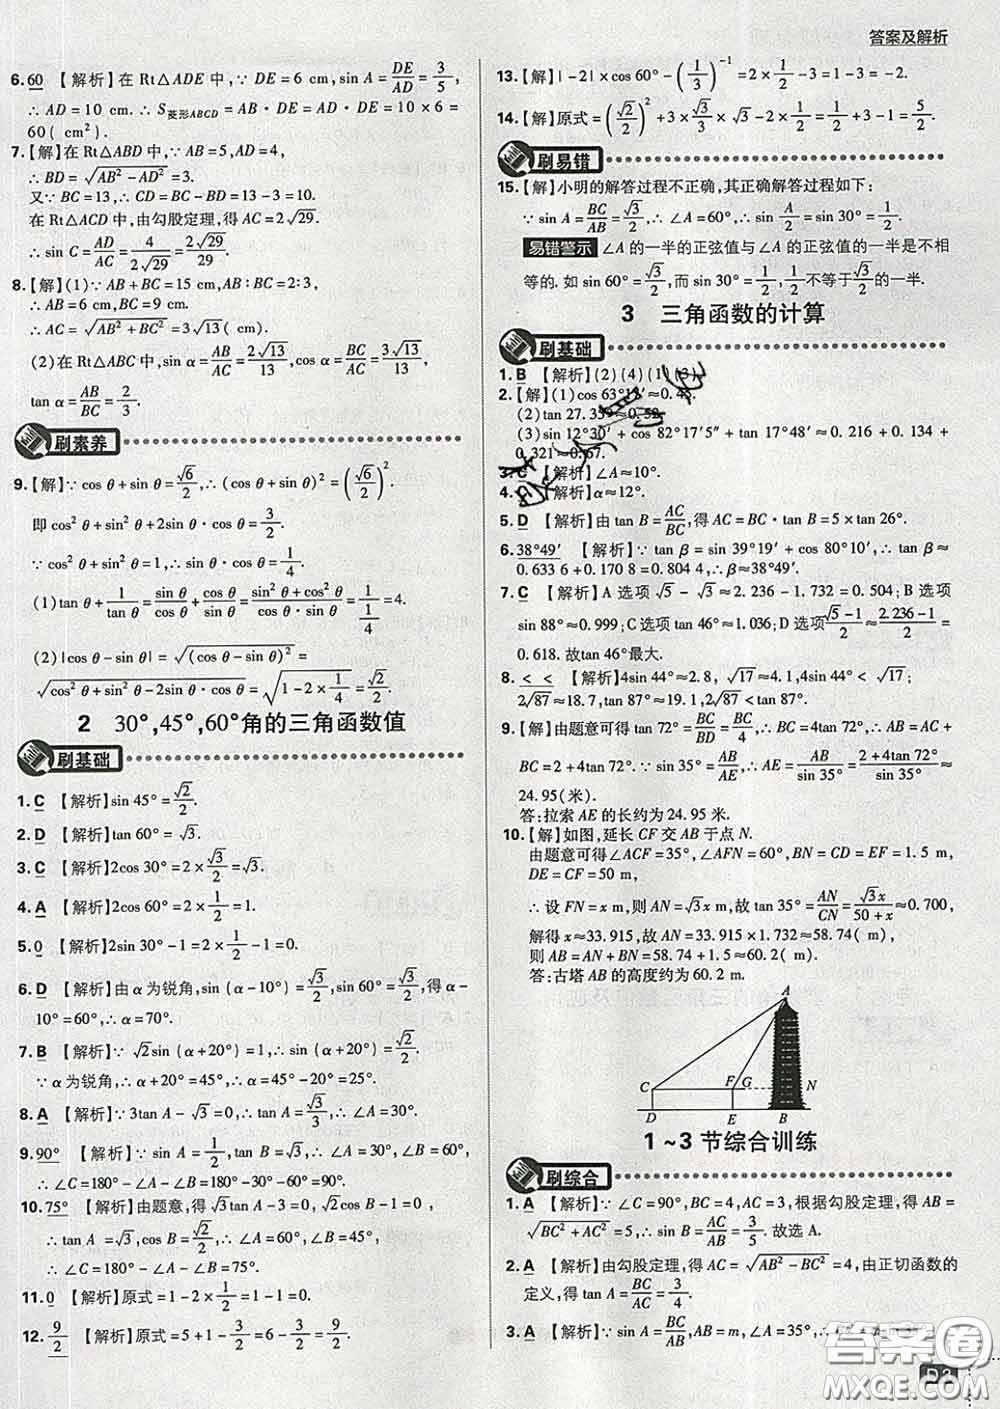 答案及解析
6.60 【解析】在 Rt△ADE 中,∵ DE=6 cm,sin A=DE/AD=3/5,
∴ AD=10 cm. ∴ S菱形ABCD=AB·DE=AD·DE=10×6=
60( cm²).
7.【解】在 Rt△ABD 中,∵ AB=5,AD=4,
∴ BD=√(AB²-AD²)=3.
又∵ BC=13,∴ CD=BC-BD=13-3=10.
在 Rt△ACD 中,由勾股定理,得 AC=2√29.
∴ sin C=AD/AC=4/(2√29)=2√29/29.
8.【解】(1)∵ AB+BC=15 cm,AB∶BC=2∶3,
∴ AB=6 cm,BC=9 cm.
∴ AC=√(AB²+BC²)=3√13( cm).
(2)在 Rt△ABC 中,sin α=AB/AC=2√13/13,cos α=BC/AC=3√13/13,
tan α=AB/BC=2/3.
刷素养
9.【解】∵ cos θ+sin θ=√6/2,∴ (cos θ+sin θ)²=(√6/2)².
即 cos²θ+sin²θ+2sin θ·cos θ=3/2.
∵ cos²θ+sin²θ=1,∴ sin θ·cos θ=1/4.
(1)tan θ+1/tan θ=sin θ/cos θ+cos θ/sin θ=(sin²θ+cos²θ)/(1/4)=1/(1/4)=4.
(2)|cos θ-sin θ|=√(cos θ-sin θ)²=
√(cos²θ+sin²θ-2cos θ·sin θ)=√(1-2×1/4)=√2/2.
2 30°,45°,60°角的三角函数值
刷基础
1.C 【解析】sin 45°=√2/2.
2.D 【解析】tan 60°=√3.
3.C 【解析】2cos 30°=2×√3/2=√3.
4.A 【解析】2cos 60°=2×1/2=1.
5.0 【解析】2sin 30°-1=2×1/2-1=0.
6.D 【解析】由 α 为锐角,sin (α-10°)=√3/2,sin 60°=√3/2,得 α-
10°=60°,∴ α=70°.
7.B 【解析】∵ √2sin (α+20°)=1,∴ sin (α+20°)=√2/2.
∵ α 为锐角,∴ α+20°=45°,∴ α=45°-20°=25°.
8.A 【解析】∵3tan A-√3=0,∴ tan A=√3/3,∴ ∠A=30°.
9.90° 【解析】∵ sin A=cos B=1/2,∴ ∠A=30°,∠B=60°,
∴ ∠C=180°-∠A-∠B=90°.
10.75° 【解析】由题意,得√3tan A-3=0,√2cos B-1=0,
∴ tan A=√3,cos B=√2/2,∴ ∠A=60°,∠B=45°,
∴ ∠C=180°-∠A-∠B=75°.
11.0 【解析】原式=1-2×1/2=1-1=0.
12.9/2 【解析】原式=5+1-3/2=6-3/2=9/2.
13.【解】|-2|×cos 60°-(1/3)⁻¹=2×1/2-3=1-3=-2.
14.【解】原式=(√2/2)²+3×√3/3×√3-2×1/2=1/2+3-1=5/2.
刷易错
15.【解】小明的解答过程不正确,其正确解答过程如下:
∵ sin A=BC/AB=√3/2,∴ ∠A=60°,∴ sin A/2=sin 30°=1/2.
易错警示 ∠A 的一半的正弦值与∠A 的正弦值的一半是不相
等的. 如 sin 60°=√3/2,而 sin 30°=1/2,1/2不等于√3/2的一半.
3 三角函数的计算
刷基础
1.B 【解析】(2)(4)(1)(3).
2.【解】(1)cos 63°17′≈0.45.
(2)tan 27.35°≈0.52.
(3)sin 12°30′+cos 82°17′5″+tan 17°48′≈0.216+0.134+
0.321≈0.67.
3.C 【解析】∠A≈10°.
4.C 【解析】α≈12°.
5.D 【解析】由 tan B=AC/BC,得 AC=BC·tan B=5×tan 26°.
6.38°49′ 【解析】∵ tan β=sin 39°19′+cos 80°10′,∴ tan β≈
0.633 6+0.170 8=0.804 4,∴ β≈38°49′.
7.C 【解析】A 选项 √5-√3≈2.236-1.732=0.504;B 选项
sin 88°≈0.999;C 选项 tan 46°≈1.036;D 选项(√5-1)/2≈(2.236-1)/2=
0.618. 故tan 46°最大.
8.< < 【解析】4sin 44°≈2.8, √17≈4.1,4sin 44°<√17;
2√87≈18.7,tan 87°≈19.1,2√87<tan 87°.
9.【解】由题意可得 tan 72°=BC/BD=BC/4,∴ BC=4tan 72°,∴ AC=AB+
BC=2+4tan 72°. ∵ sin 35°=AC/AE,∴ AE=AC/sin 35°=(2+4tan 72°)/sin 35°≈
24.95(米).
答:拉索 AE 的长约为 24.95 米.
10.【解】如图,延长 CF 交 AB 于点 N.
由题意可得∠ACF=35°,∠AFN=60°,BN=CD=EF=1.5 m,
DE=CF=50 m,
∴ 设 FN=x m,AN=√3x m,故 tan 35°=AN/CN=√3x/(50+x)≈0.700,
解得 x≈33.915,故 AN=33.915×1.732≈58.74( m),
则 AB=AN+BN=58.74+1.5≈60.2( m).
答:古塔 AB 的高度约为 60.2 m.
A
C F G N
D E B
1~3 节综合训练
刷综合
1.A 【解析】∵ ∠C=90°,BC=4,AC=3,根据勾股定理,得 AB=
√(BC²+AC²)=5,∴ sin B=AC/AB=3/5. 故选 A.
2.A 【解析】由勾股定理,得 AC=√(AB²-BC²)=4,由正切函数的
定义,得 tan A=BC/AC=3/4.
3.A 【解析】∵ sin A=BC/AB,AB=m,∠A=35°,∴ BC=m sin 35°
答案圈
MXQE.COM
D3